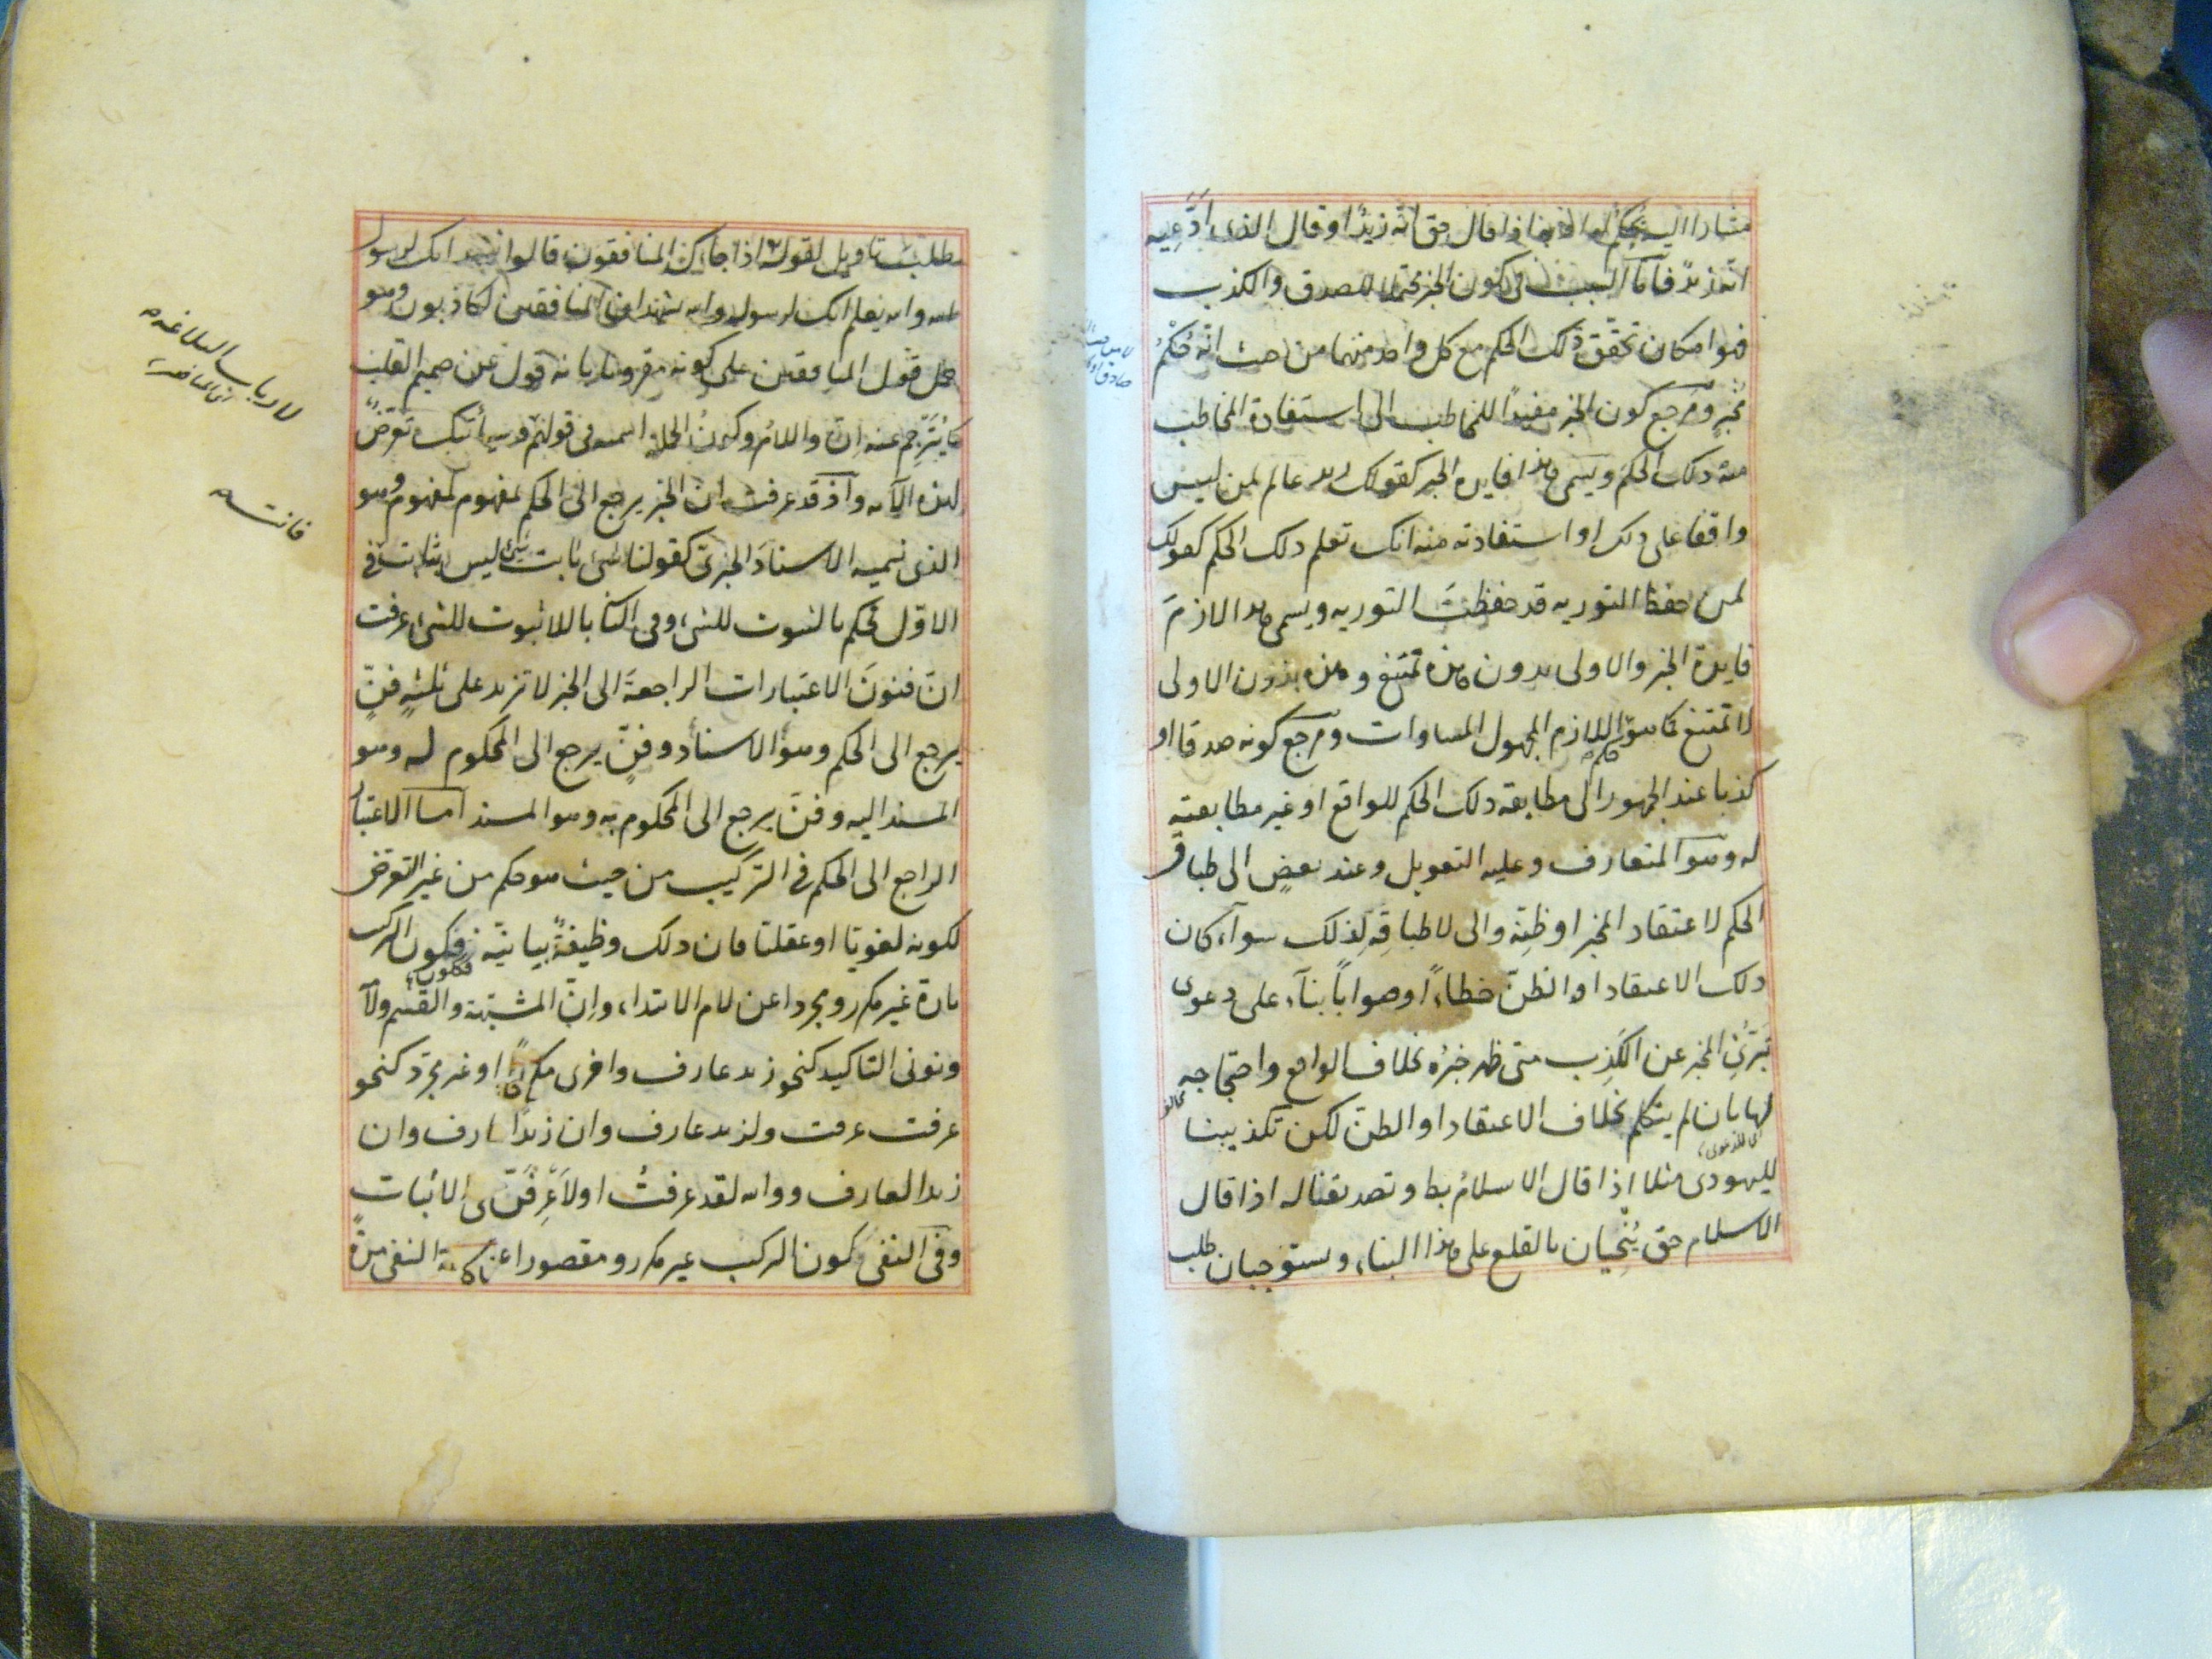 مشارا اليه بحكم له اذا قال حق انه زيد او قال الذى ادّعيه
انه زيد فاما السبب فى كون الخبر محتملا للصدق والكذب
فهو امكان تحقق ذلك الحكم مع كل واحد منهما من حيث انّه حُكْمُ
مُخْبِرٍ ومرجع كون الخبر مفيدًا للمخاطب الى استفادة المخاطب
منه ذلك الحكم ويسمى هذا فايدة الخبر كقولك زيد عالم لمن ليس
واقفا على ذلك او استفادته منه انك تعلم ذلك الحكم كقولك
لمن حفظ التورية قد حفظتَ التورية ويسمى هذا لازمَ
فايدة الخبر والاولى بدون هذه تمتنع وهذه بدون الاولى
لا تمتنع كما هو حكم اللازم المجهول المساوات ومرجع كونه صدقا او
كذبا عند الجمهور الى مطابقة ذلك الحكم للواقع او غير مطابقته
له وهو المتعارف وعليه التعويل وعند بعضٍ الى طباق
الحكم لاعتقاد المخبر او ظنِّه والى لا طباقِه لِذلك سوآء كان
ذلك الاعتقاد او الظنّ خطاءً او صوابًا بنآء على دعوى
تبرّئ المخبر عن الكَذِب متى ظهر خبرُه بخلاف الواقع واحتجاجه
لها بان لم يتكلم بخلاف الاعتقاد او الظن لكن تكذيبنا
لليهودى مثلا اذا قال الاسلامُ بط وتصديقنا له اذا قال
الاسلام حق يُنْحِيان بالقلع على هذا البناء ويستوجبان طلب
طلب تاويل لقوله اذا جاءك المنافقون قالوا نشهد انك لرسول
الله والله يعلم انك لرسوله والله يشهد ان المنافقين لكاذبون وهو
حمل قول المنافقين على كونه مقرونا بانه قول عن صميم القلب
كما يُتَرجِم عنه اِنّ واللامُ وكونُ الجملة اسمية فى قولهم وسيأتيك تعرّضٌ
لهذه الآية واذ قد عرفت ان الخبر يرجع الى الحكم بمفهوم لمفهوم وهو
الذى نسميه الاسنادَ الخبرىّ كقولنا شئ ثابت شئ ليس بثابت فى
الاوّل تحكم بالثبوت للشئ وفى الثانى باللاثبوت للشئ عرفت
انّ فنونَ الاعتبارات الراجعةَ الى الخبر لا تزيد على ثلثةٍ فنّ
يرجع الى الحكم وهو الاسناد وفنّ يرجع الى المحكوم له وهو
المسند اليه وفنّ يرجع الى المحكوم به وهو المسند اما الاعتبار
الراجع الى الحكم فى التركيب من حيث هو حكم من غير التعرض
لكونه لغويّا او عقليّا فان ذلك وظيفةٌ بيانيّة فككون التركيب
تارة غير مكرر ومجردا عن لام الابتداء واِنّ المشبّهة والقسم ولآ
ونونى التاكيد كنحو زيد عارف واخرى مكررًا او غير مجرّد كنحو
عرفت عرفت ولزيد عارف وان زيدًا عارف وان
زيدا لعارف ووالله لقد عرفتُ او لأعرِفَنّ فى الاثبات
وفى النفى ككون التركيب غير مكرر ومقصورا على كلمة النفى مرةً
لارباب البلاغة